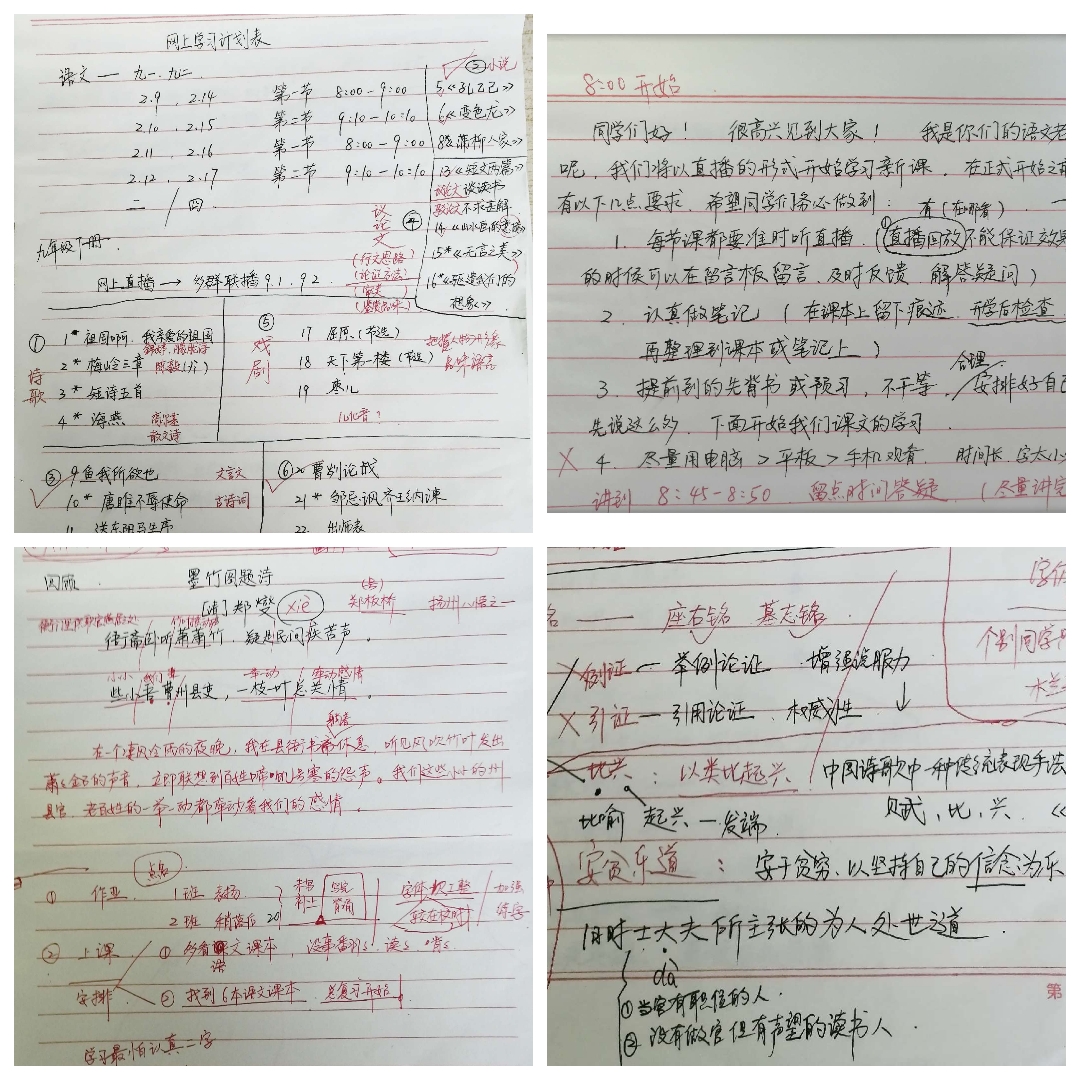 网上学习计划表
语文 — 九一、九二
2.9 、2.14 第一节 8:00-9:00
2.10 、2.15 第二节 9:10-10:10
2.11 、2.16 第一节 8:00-9:00
2.12 、2.17 第二节 9:10-10:10
二 / 四
九年级下册
网上直播 → 多群联播 9.1、9.2
② 小说
5.《孔乙己》
6.《变色龙》
8《蒲柳人家》
13《短文两篇》
谈读书
不求甚解
15*《无言之美》
16*《驱遣我们的
想象》
④
议论文
(行文思路)
(论证方法)
① 诗歌
1* 祖国啊，我亲爱的祖国
2* 梅岭三章 陈毅
3* 短诗五首
4* 海燕 高尔基
散文诗
⑤ 戏剧
17 屈原（节选）
18 天下第一楼（节选）
19 枣儿
③ 9 鱼我所欲也 文言文
10* 唐雎不辱使命 古诗词
11 送东阳马生序
⑥ 20 曹刿论战
21* 邹忌讽齐王纳谏
22 出师表
8:00 开始
同学们好！ 很高兴见到大家！ 我是你们的语文老
呢，我们将以直播的形式开始学习新课。在正式开始之前
有以下几点要求，希望同学们务必做到：
有（在哪看）
1. 每节课都要准时听直播（①直播回放不能保证效果
的时候可以在留言板留言，及时反馈，解答疑问）
2. 认真做笔记（在课本上留下痕迹，开学后检查
再整理到课本或笔记上）
3. 提前到的先背书或预习，不干等，合理安排好自己
先说这么多，下面开始我们课文的学习
4. 尽量用电脑 > 平板 > 手机观看 时间长，字太小
讲到 8:45-8:50 留点时间答疑（尽量讲完
回顾 墨竹图题诗
[清] 郑燮 xiè (号) 郑板桥 扬州八怪之一
衙斋卧听萧萧竹，疑是民间疾苦声。
小小 我们 一举一动 牵动感情
些小吾曹州县吏，一枝一叶总关情。
在一个凄风冷雨的夜晚，我在县衙书斋休息，听见风吹竹叶发出
萧萧的声音，立即联想到百姓啼饥号寒的怨声。我们这些小小的州
县官，老百姓的一举一动都牵动着我们的感情。
点名
① 作业 1班 表扬
2班 稍落后 20
未写
补上
写完
背诵
字体 较工整
加强
练字
② 上课 ① 多看语文课本，没事翻翻、读读
安排 ② 找到6本语文课本 总复习开始
学习最怕认真二字
座右铭 墓志铭
例证 — 举例论证 增强说服力
引证 — 引用论证 权威性
个别同学
木兰
比兴：以类比起兴 中国诗歌中一种传统表现手法
比喻 起兴 — 发端 赋，比，兴。《
安贫乐道：安于贫穷，以坚持自己的信念为乐
旧时士大夫所主张的为人处世之道
dà
① 当官有职位的人.
② 没有做官但有声望的读书人
第